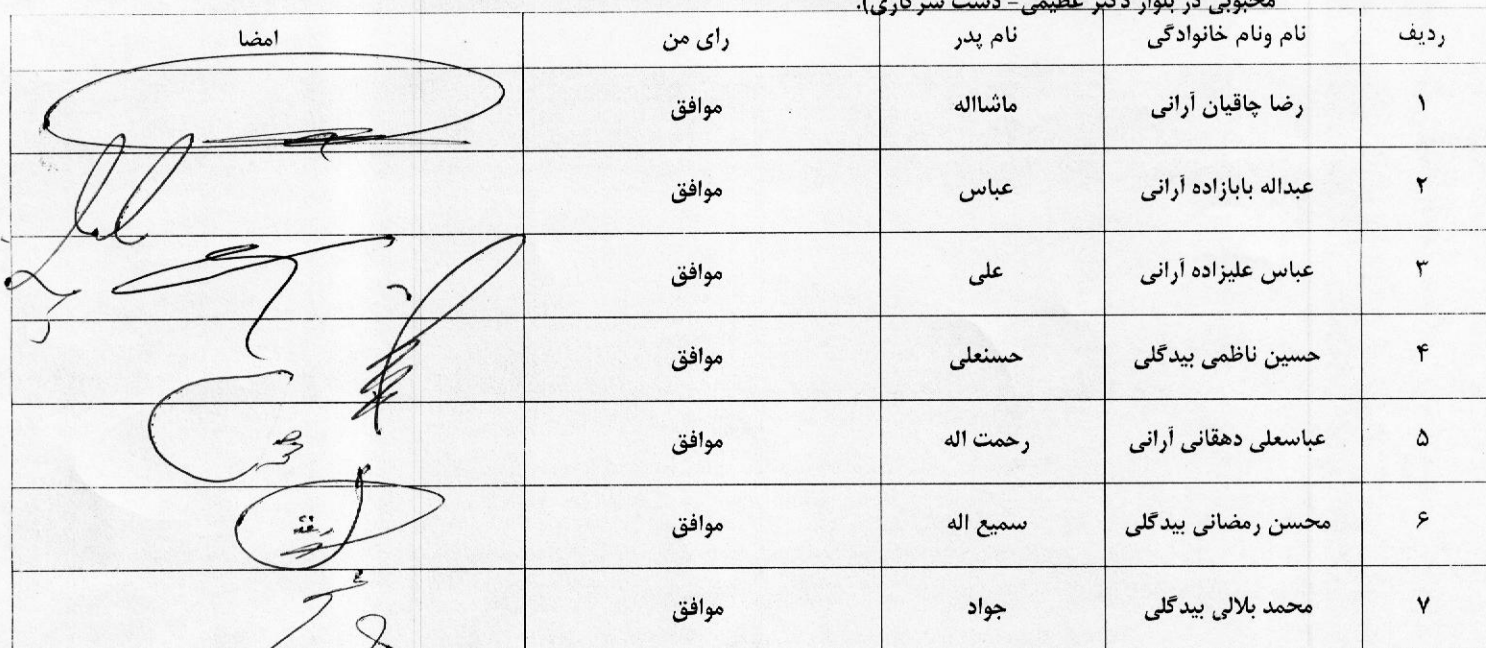 محبوبی در بلوار دکتر عظیمی- دست شرکاری).
ردیف نام ونام خانوادگی نام پدر رای من امضا
۱ رضا چاقیان آرانی ماشااله موافق
۲ عبداله بابازاده آرانی عباس موافق
۳ عباس علیزاده آرانی علی موافق
۴ حسین ناظمی بیدگلی حسنعلی موافق
۵ عباسعلی دهقانی آرانی رحمت اله موافق
۶ محسن رمضانی بیدگلی سمیع اله موافق
۷ محمد بلالی بیدگلی جواد موافق